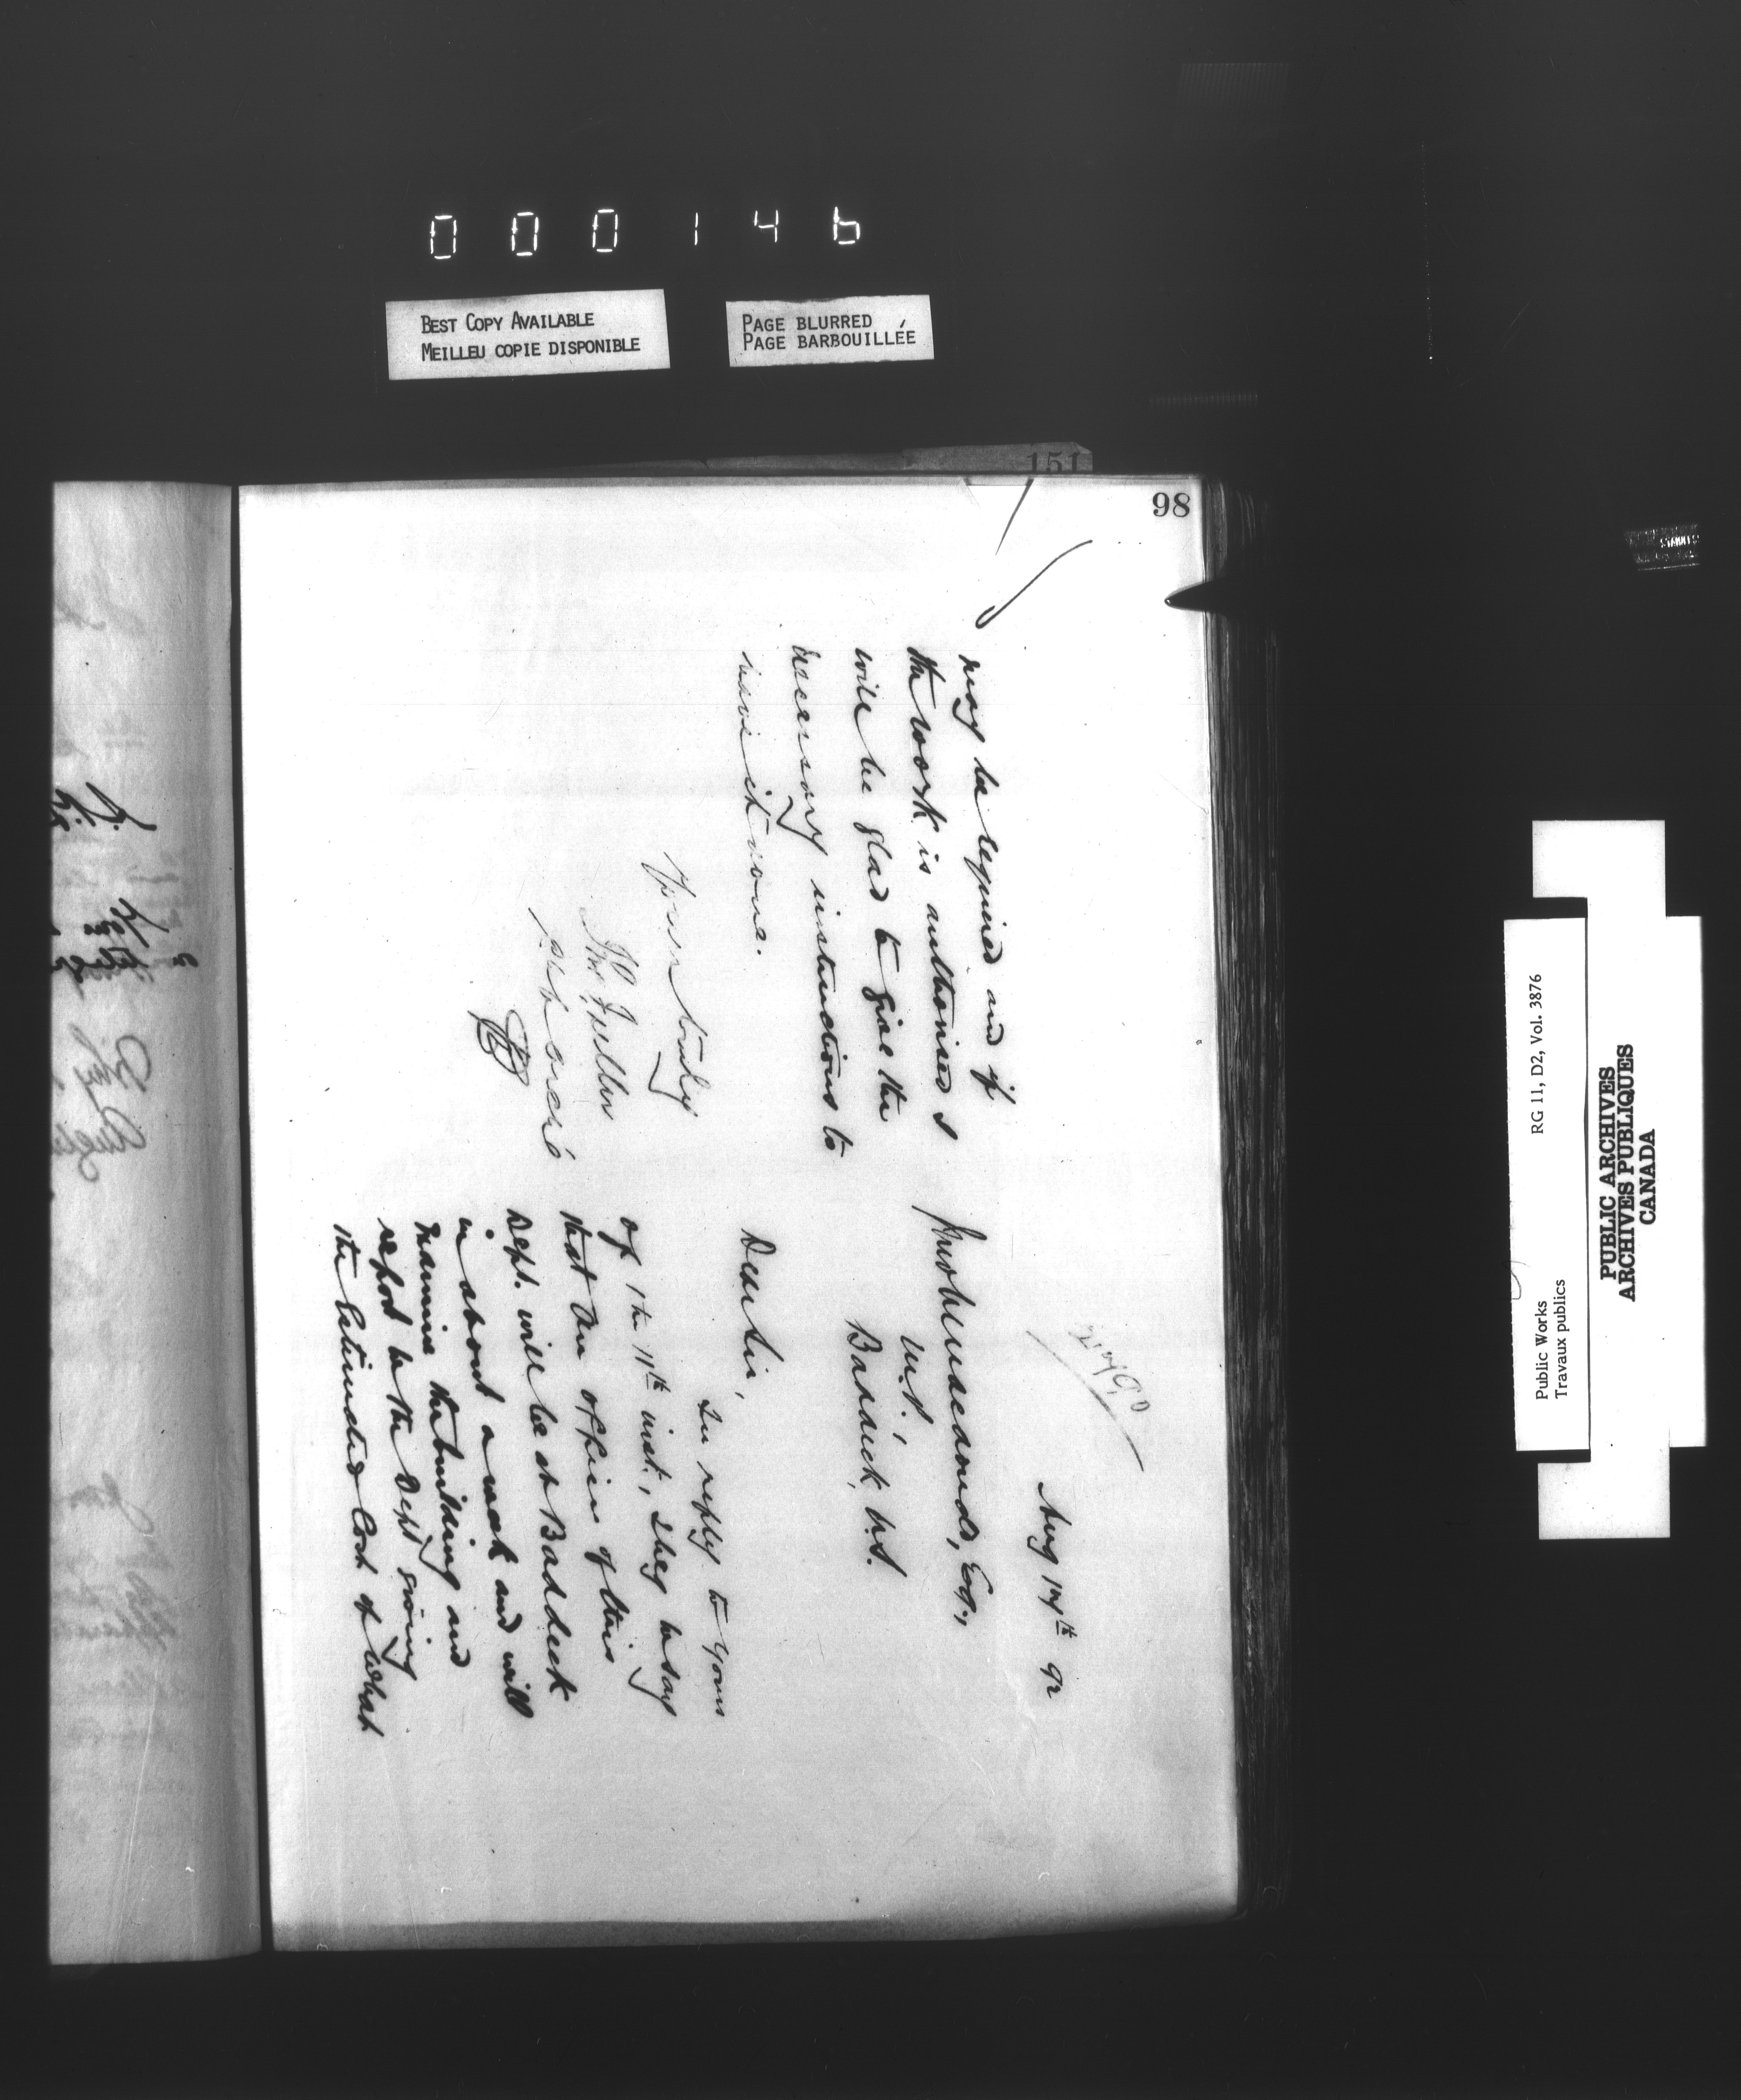 000146
BEST COPY AVAILABLE
MEILLEU COPIE DISPONIBLE
PAGE BLURRED
PAGE BARBOUILLÉE
151
98
Aug 17th 92
Esq.,
M.P.,
Baddeck, N.S.
Dear Sir,
In reply to yours
of the 11th inst., I beg to say
that an officer of this
Dept. will be at Baddeck
in about a week and will
examine the building and
report to the Dept giving
the Estimated Cost of what
may be required and if
the work is authorised I
will be glad to give the
necessary instructions to
have it done.
Yours truly
Thos. Fuller
RG 11, D2, Vol. 3876
Public Works
Travaux publics
PUBLIC ARCHIVES
ARCHIVES PUBLIQUES
CANADA